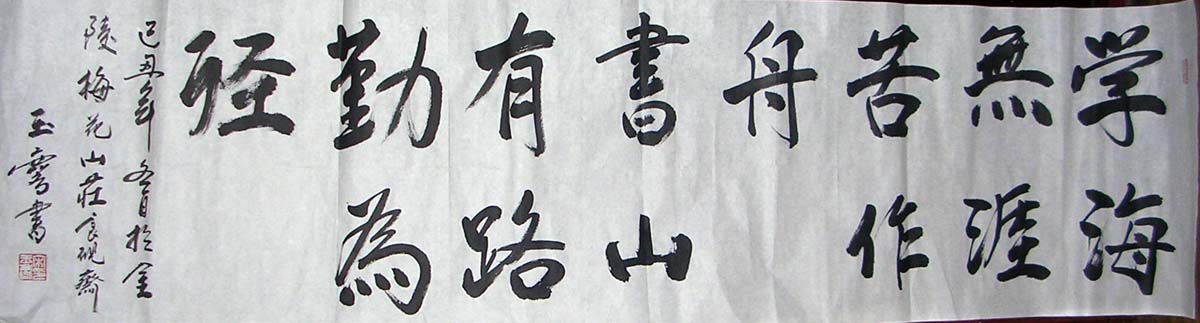 学海
無涯
苦作
舟
書山
有路
勤為
径
己丑年冬月於金
陵梅花山莊食砚齋
玉書